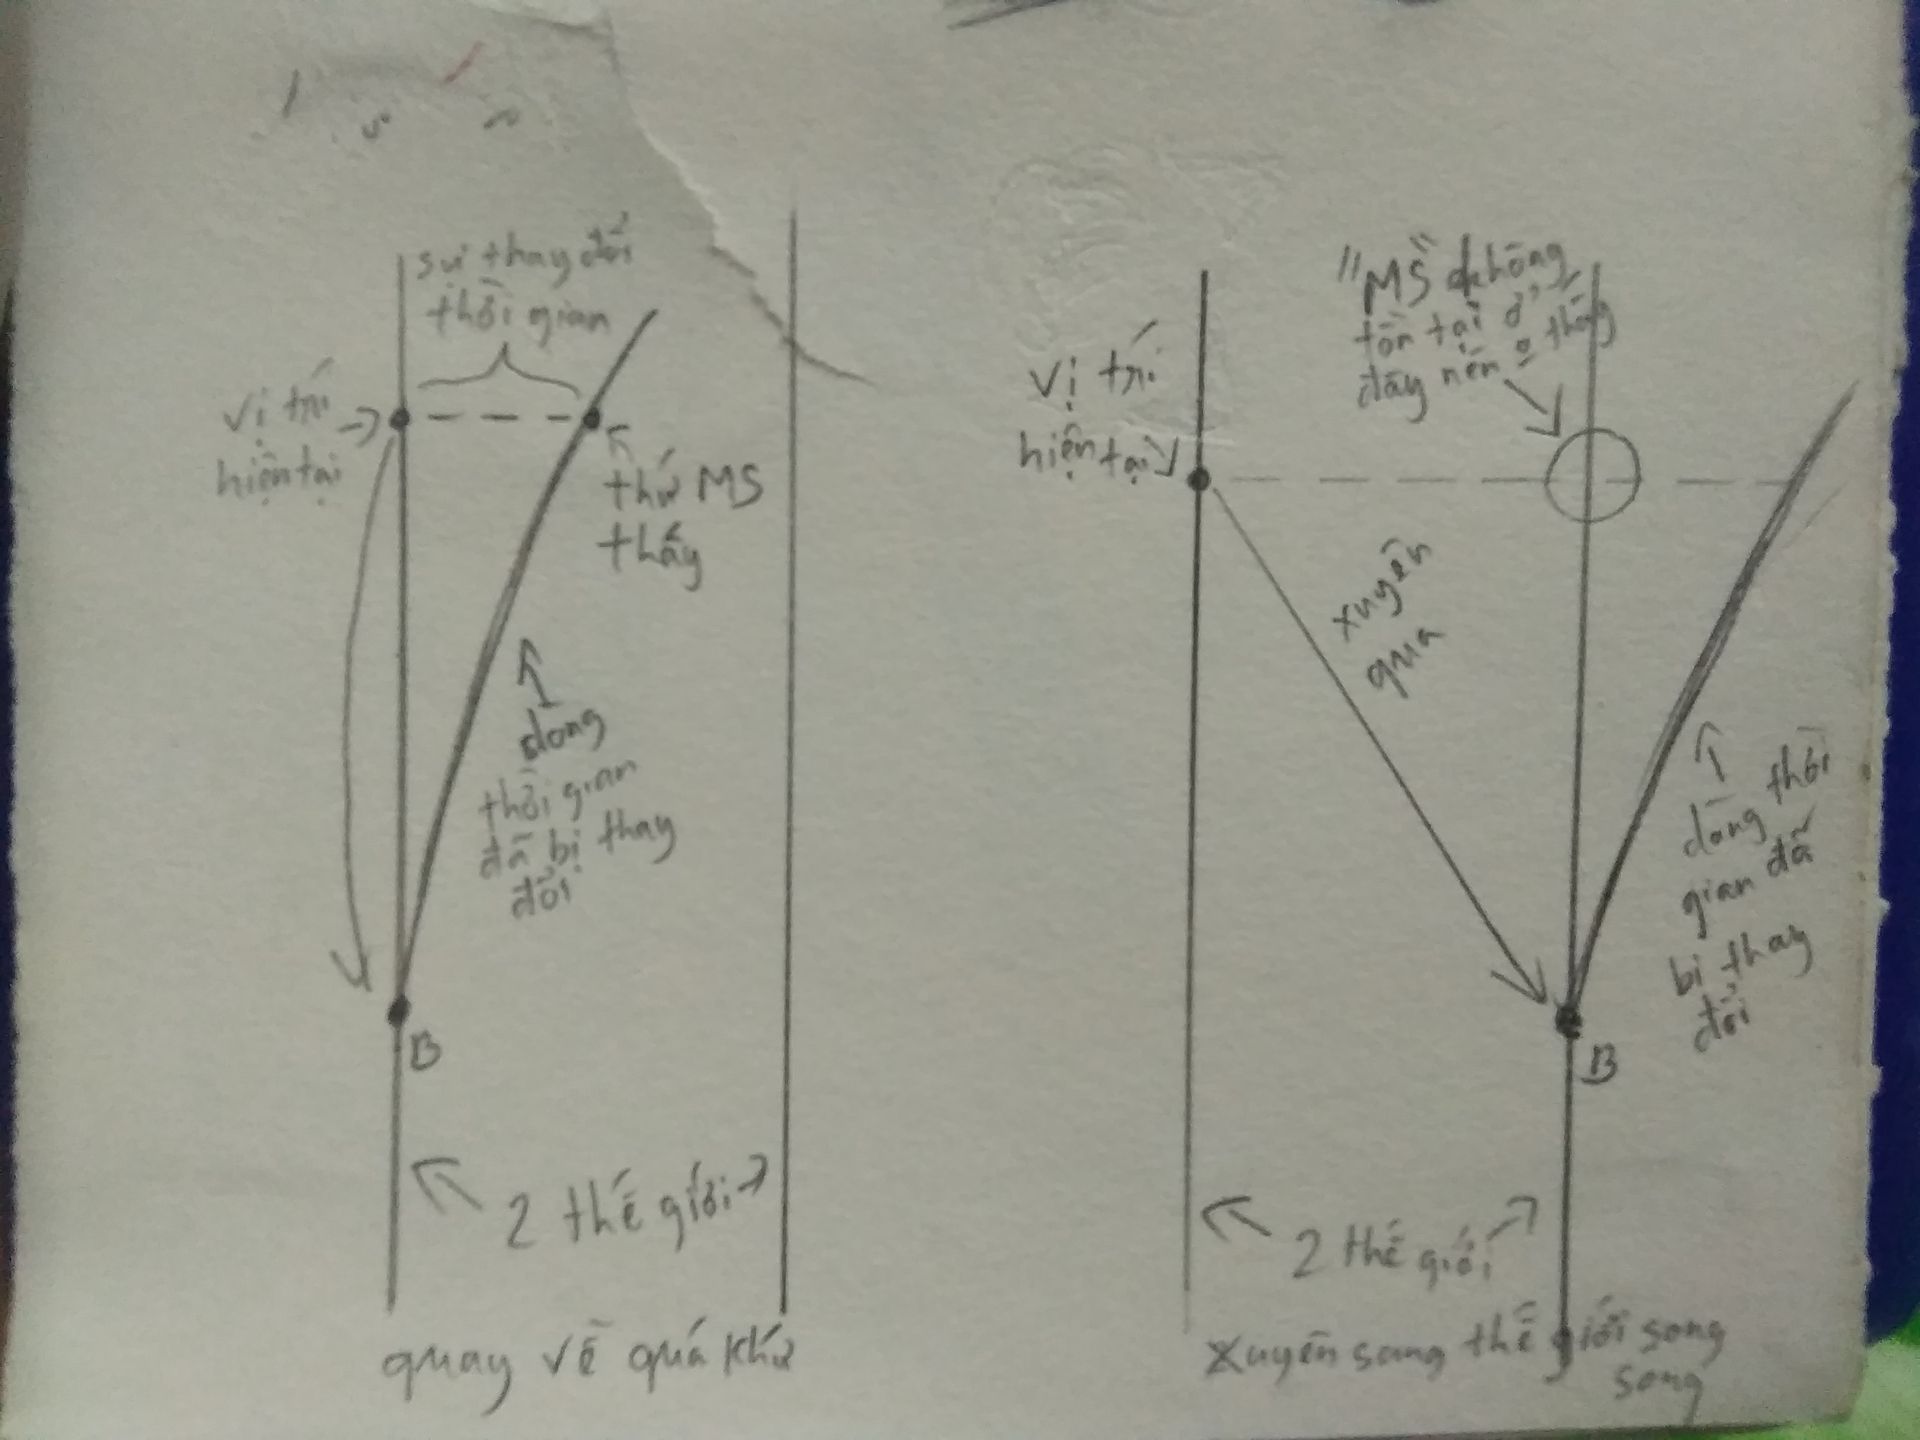 sự thay đổi
thời gian
vị trí
hiện tại
thứ MS
thấy
dòng
thời gian
đã bị thay
đổi
B
2 thế giới
quay về quá khứ
"MS" không
tồn tại ở
đây nên o thấy
vị trí
hiện tại
xuyên
qua
dòng thời
gian đã
bị thay
đổi
B
2 thế giới
xuyên sang thế giới song
song